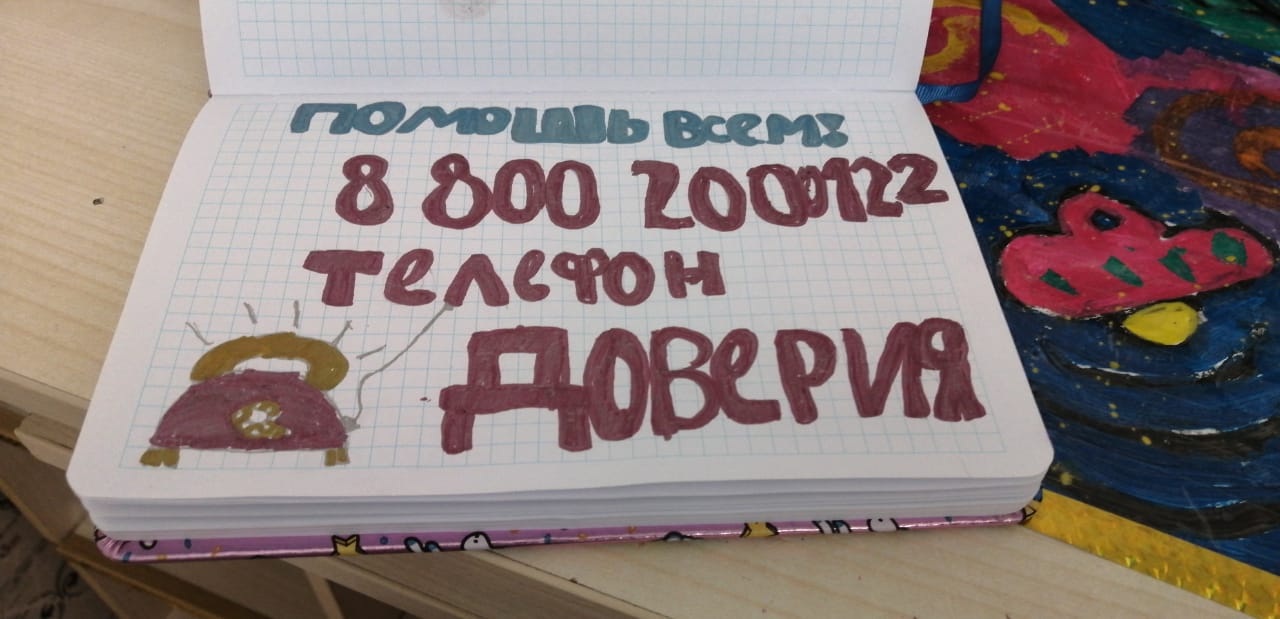 помощь всем!
8 800 2000122
телефон
доверия